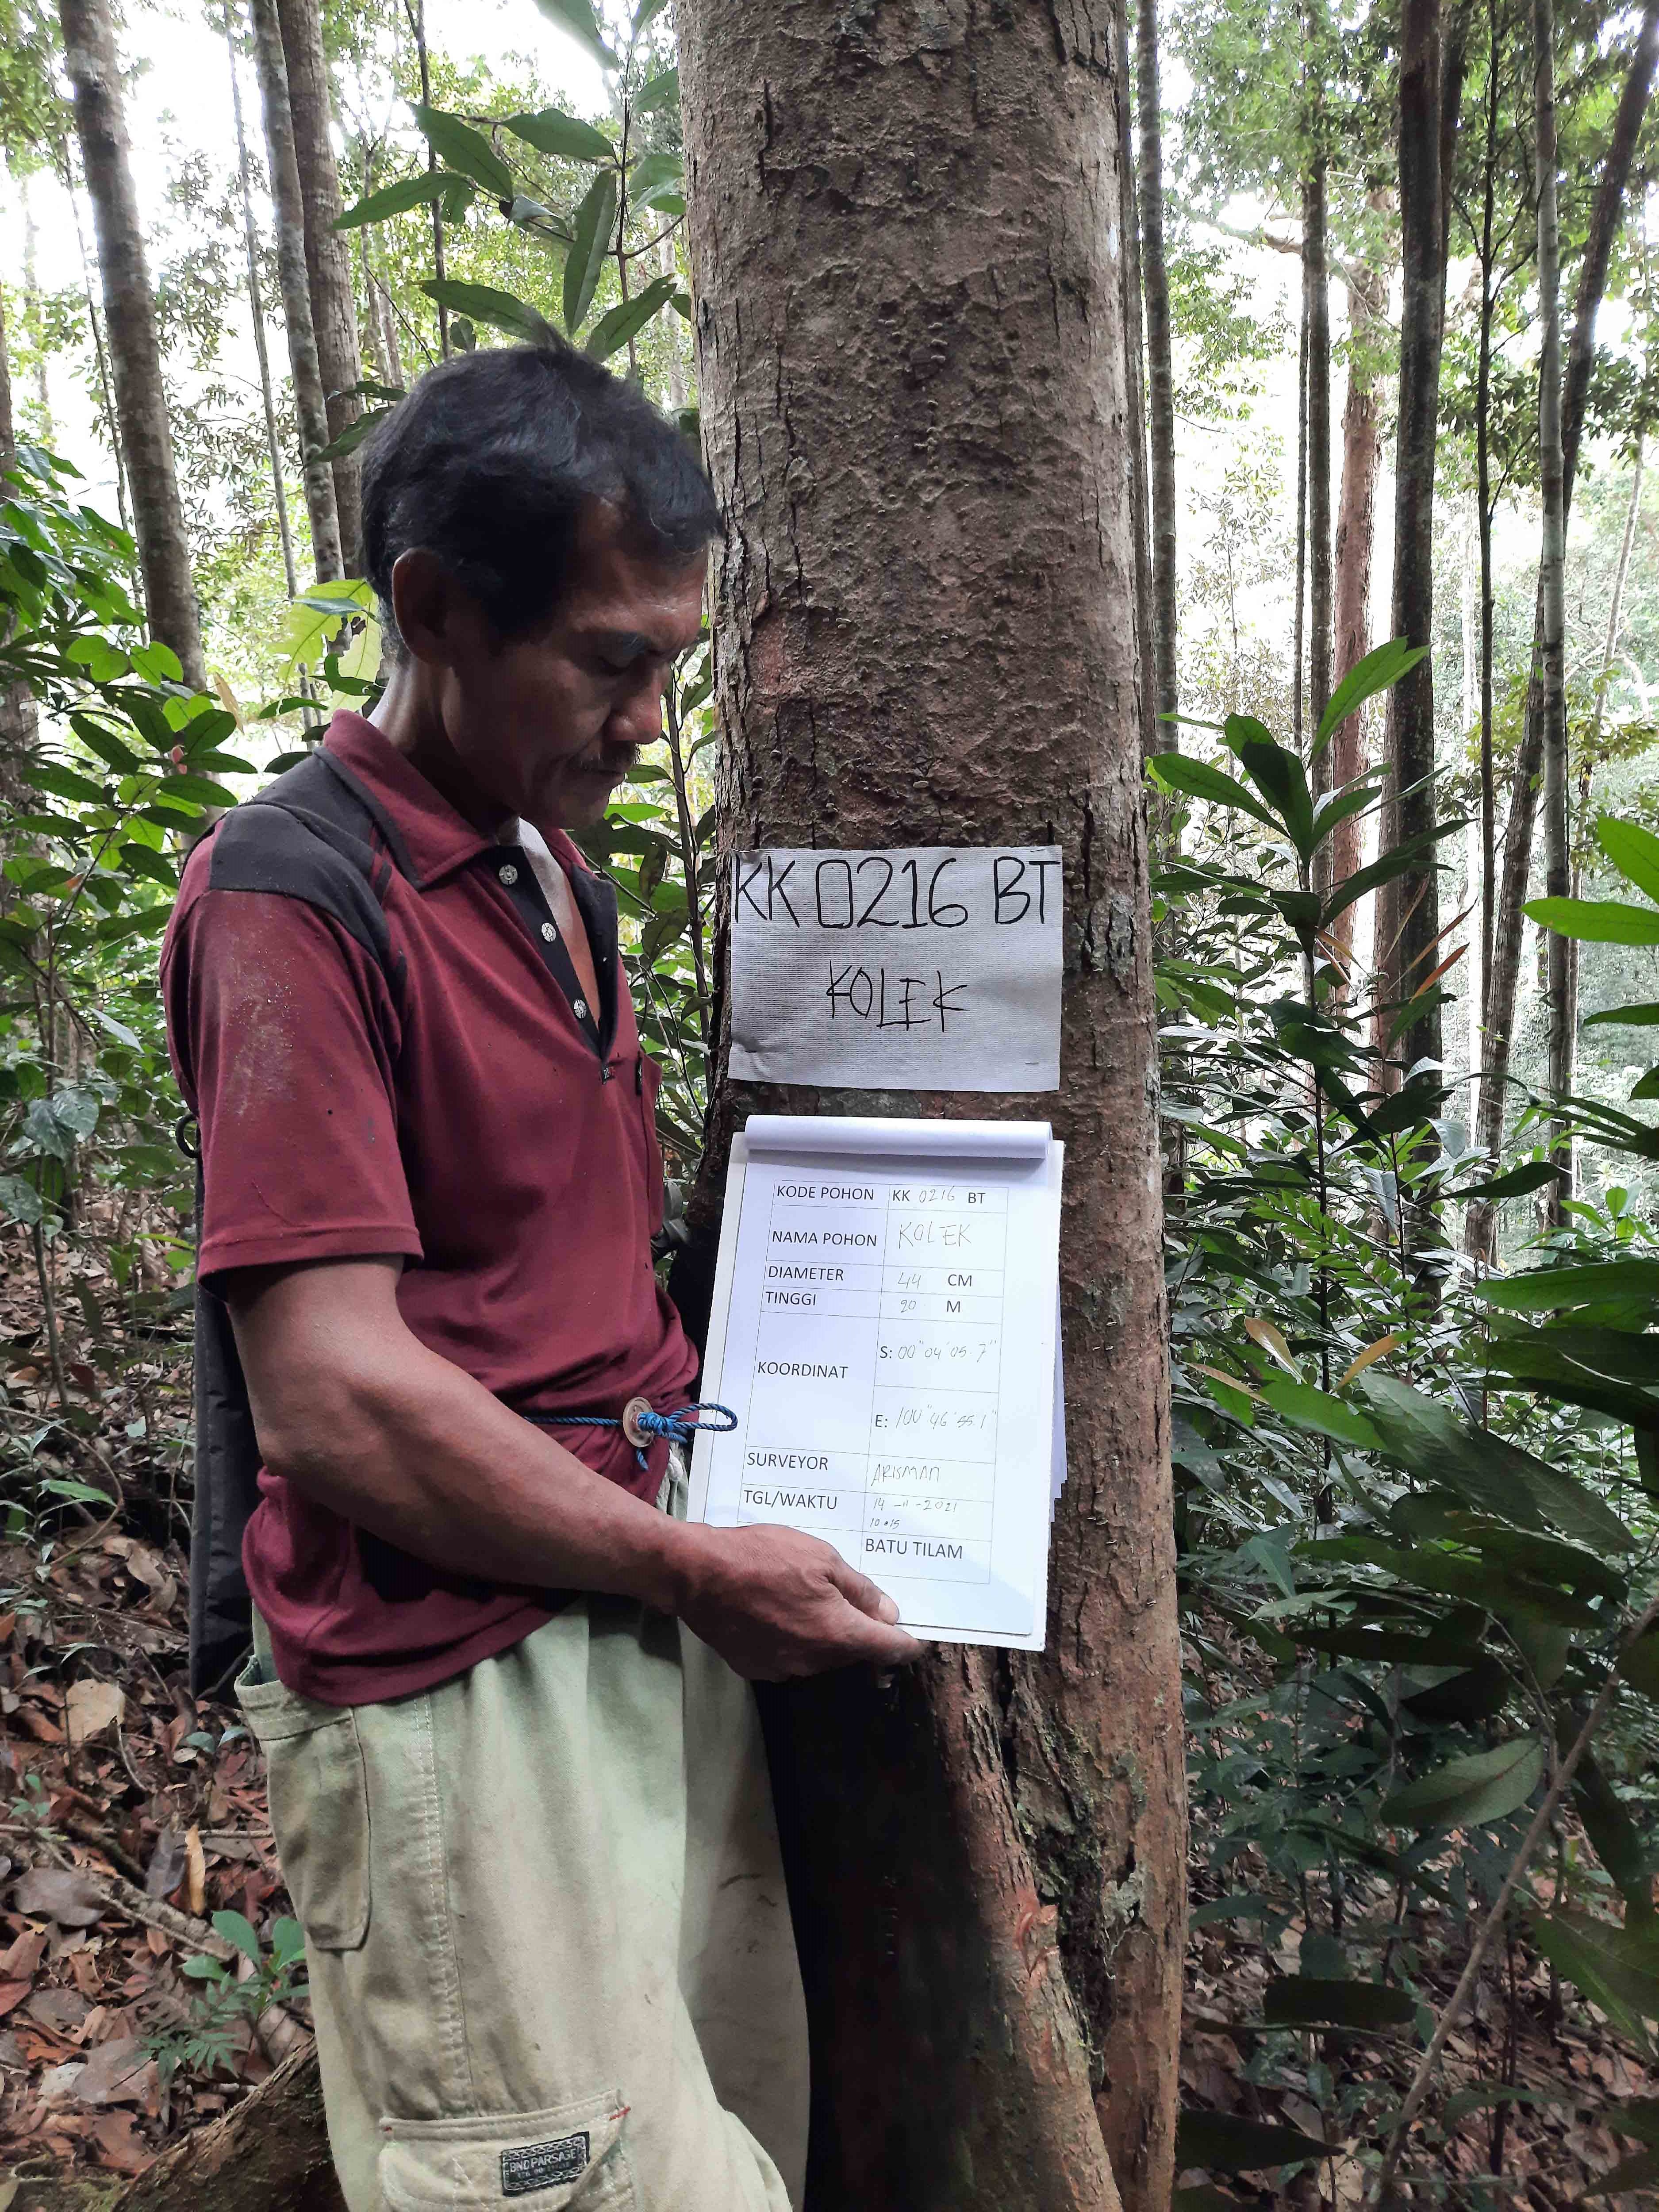 KK 0216 BT
KOLEK
KODE POHON KK 0216 BT
NAMA POHON KOLEK
DIAMETER 44 CM
TINGGI 20 M
KOORDINAT
S: 00" 04' 05.7"
E: 100" 46' 55.1"
SURVEYOR ARISMAN
TGL/WAKTU 14-11-2021
10.15
BATU TILAM
BNDPARSAGE